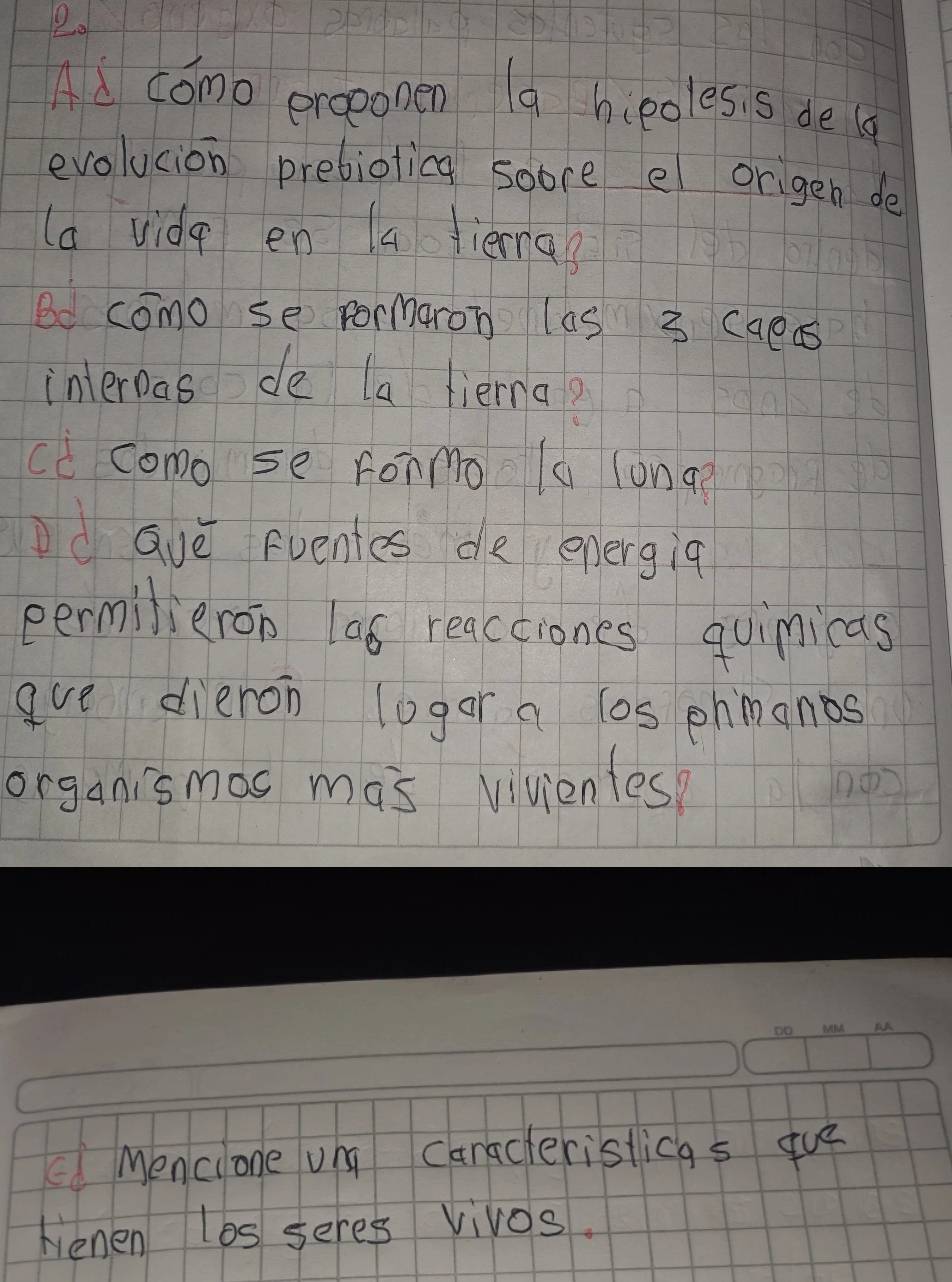 2.
A¿ cómo proponen la hipotesis de la
evolución prebiotica sobre el origen de
la vida en la tierra?
B¿ cómo se formarón las 3 capas
internas de la tierra?
C¿ como se formo la luna?
D¿ Qué fuentes de energia
permitierón las reacciones quimicas
que dierón lugar a los
organismos más vivientes?
DD MM AA
E¿ Mencione una caracteristicas que
tienen los seres vivos.